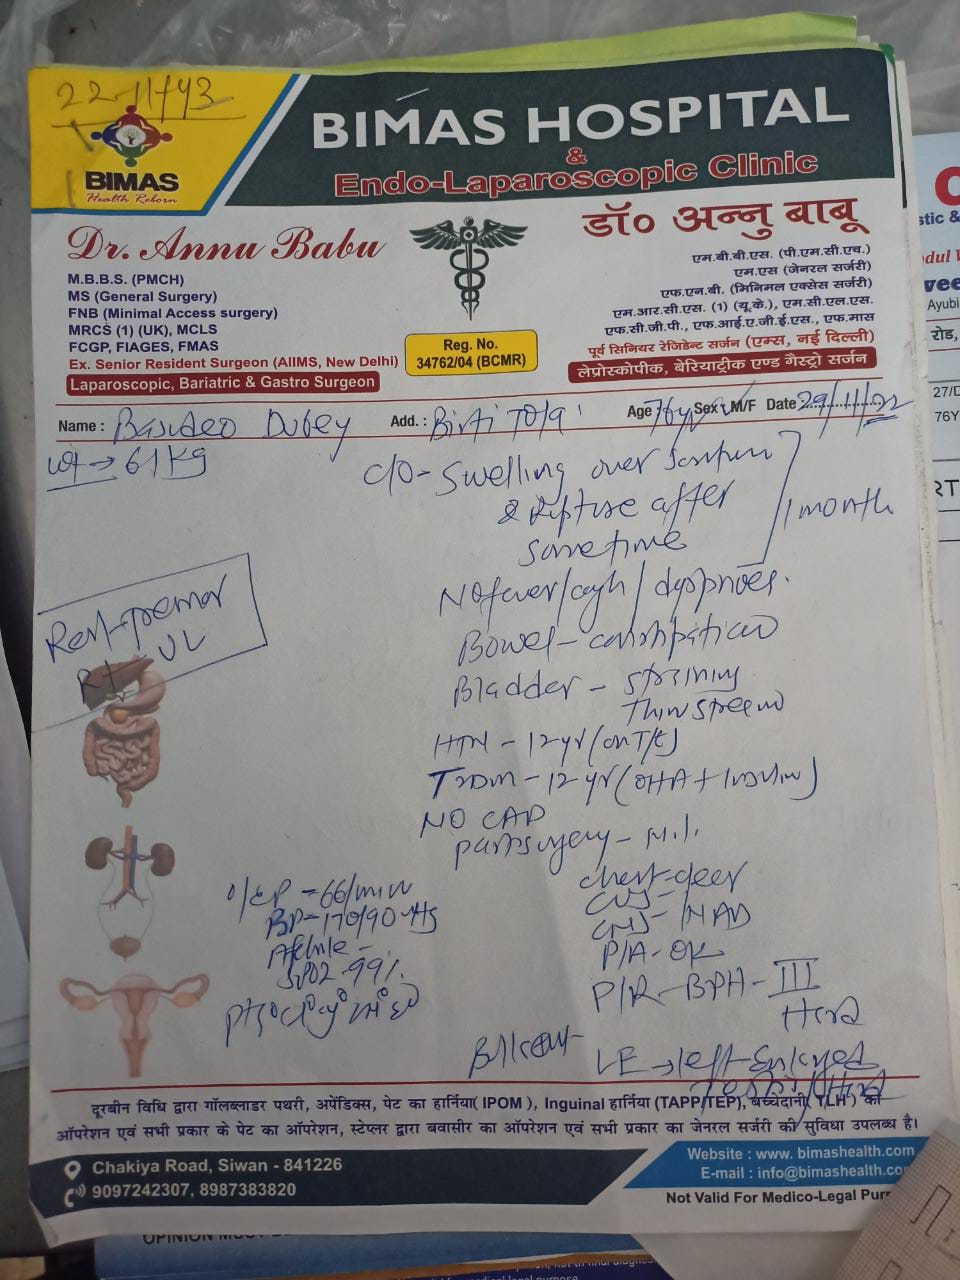 22-11/43
BIMAS HOSPITAL
&
Endo-Laparoscopic Clinic
BIMAS
Health Reborn
Dr. Annu Babu
M.B.B.S. (PMCH)
MS (General Surgery)
FNB (Minimal Access surgery)
MRCS (1) (UK), MCLS
FCGP, FIAGES, FMAS
Ex. Senior Resident Surgeon (AIIMS, New Delhi)
Laparoscopic, Bariatric & Gastro Surgeon
Reg. No.
34762/04 (BCMR)
डॉ० अन्नु बाबू
एम.बी.बी.एस. (पी.एम.सी.एच.)
एम.एस (जेनरल सर्जरी)
एफ.एन.बी. (मिनिमल एक्सेस सर्जरी)
एम.आर.सी.एस. (1) (यू.के.), एम.सी.एल.एस.
एफ.सी.जी.पी., एफ.आई.ए.जी.ई.एस., एफ.मास
पूर्व सिनियर रेजिडेन्ट सर्जन (एम्स, नई दिल्ली)
लेप्रोस्कोपीक, बेरियाट्रीक एण्ड गैस्ट्रो सर्जन
Name : Basudeo Dubey Add. : Birti Tola Age 76yr Sex : M/F Date : 29/11/22
wt → 61 kg
c/o - Swelling over
& Rupture after
sometime
1 month
No fever/cough/dyspnoea.
Rest-tremor
Rt UL
Bowel - constipation
Bladder - straining
Thin stream
HTN - 12 yr (on T/t)
T2DM - 12 yr (OHA + Insulin)
NO CAD
Past surgery - N.I.
O/E P = 66/min
BP = 170/90 mmHg
Afebrile -
SPO2 - 99%
Chest - clear
CVS -
CNS - NAD
P/A - OK
P/R - BPH - III
Hard
LE → left Enlarged
Testis / Hard
दूरबीन विधि द्वारा गॉलब्लाडर पथरी, अपेंडिक्स, पेट का हार्निया( IPOM ), Inguinal हार्निया (TAPP/TEP), बच्चेदानी( TLH ) का
ऑपरेशन एवं सभी प्रकार के पेट का ऑपरेशन, स्टेप्लर द्वारा बवासीर का ऑपरेशन एवं सभी प्रकार का जेनरल सर्जरी की सुविधा उपलब्ध है।
Chakiya Road, Siwan - 841226
9097242307, 8987383820
Website : www. bimashealth.com
E-mail : info@bimashealth.co
Not Valid For Medico-Legal Pur
stic &
Ayubi
रोड,
27/D
76Y
RT